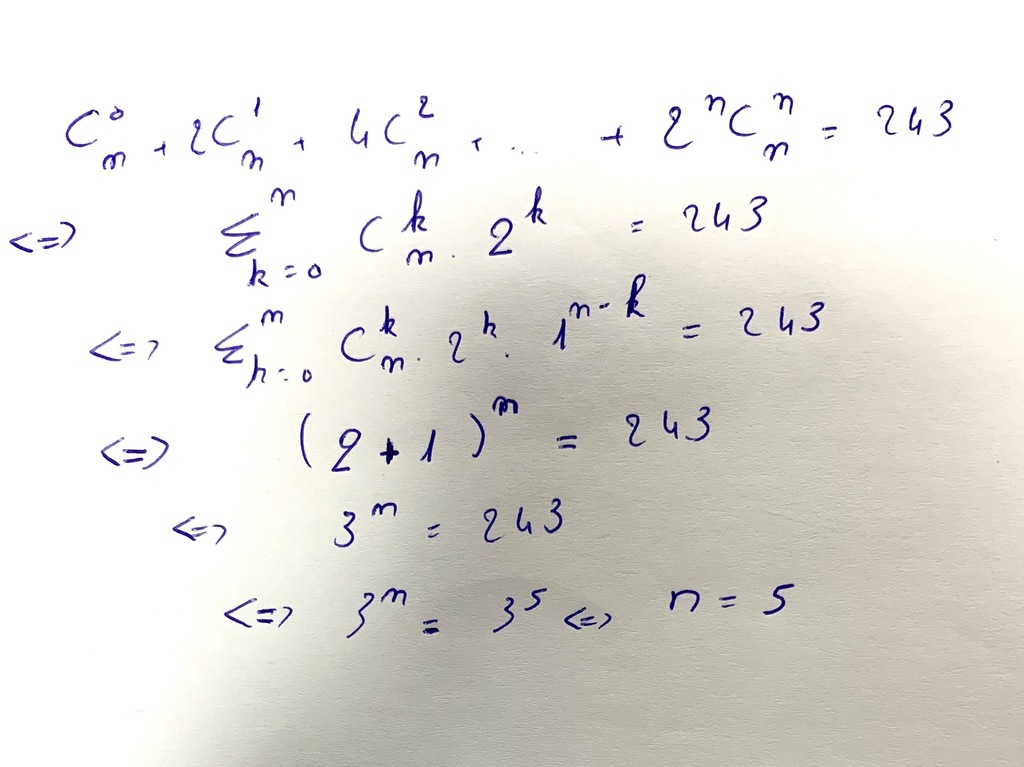 C_n^0 + 2C_n^1 + 4C_n^2 + ... + 2^n C_n^n = 243
<=> Σ_{k=0}^n C_n^k . 2^k = 243
<=> Σ_{k=0}^n C_n^k . 2^k . 1^{n-k} = 243
<=> (2+1)^n = 243
<=> 3^n = 243
<=> 3^n = 3^5 <=> n = 5